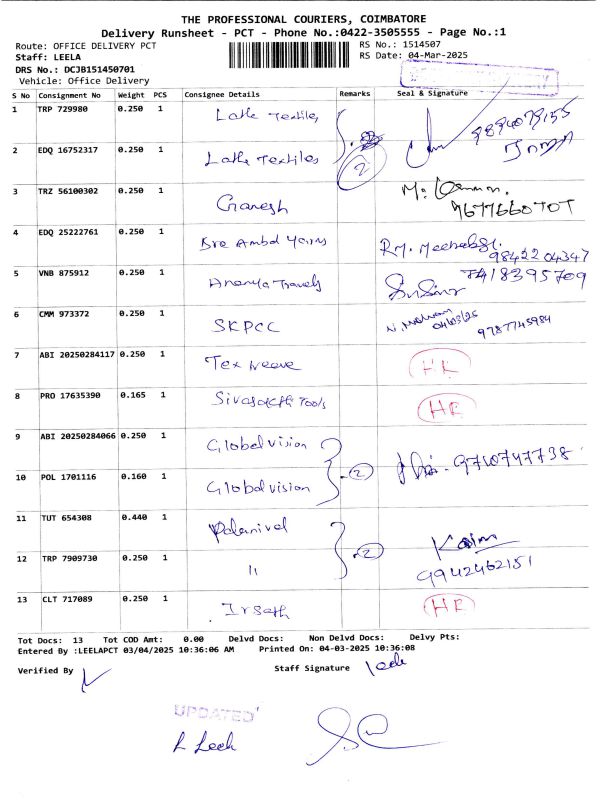 THE PROFESSIONAL COURIERS, COIMBATORE
Delivery Runsheet - PCT - Phone No.:0422-3505555 - Page No.:1
Route: OFFICE DELIVERY PCT RS No.: 1514507
Staff: LEELA RS Date: 04-Mar-2025
DRS No.: DCJB151450701
Vehicle: Office Delivery
S No Consignment No Weight PCS Consignee Details Remarks Seal & Signature
1 TRP 729980 0.250 1 Textiles
2 EDQ 16752317 0.250 1 Textiles 2
3 TRZ 56100302 0.250 1 Ganesh
9677660707
4 EDQ 25222761 0.250 1 Sre Ambal Yarns 9842204347
5 VNB 875912 0.250 1 Ananya Travels 7418395709
6 CMM 973372 0.250 1 SKPCC 04/03/25 9787745984
7 ABI 20250284117 0.250 1 Tex Weave HR
8 PRO 17635390 0.165 1 Tools HR
9 ABI 20250284066 0.250 1 Global vision
10 POL 1701116 0.160 1 Global vision 2 9710747738
11 TUT 654308 0.440 1 Palanivel
12 TRP 7909730 0.250 1 11 2 9942462151
13 CLT 717089 0.250 1 Irsath HR
Tot Docs: 13 Tot COD Amt: 0.00 Delvd Docs: Non Delvd Docs: Delvy Pts:
Entered By :LEELAPCT 03/04/2025 10:36:06 AM Printed On: 04-03-2025 10:36:08
Verified By Staff Signature
UPDATED